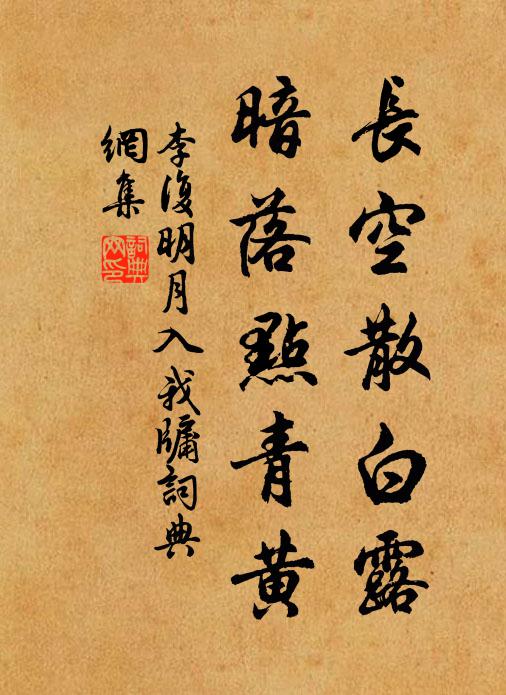 長空散白露
暗落點青黃
李復明月入我牖詞典
網集
詞典
网印